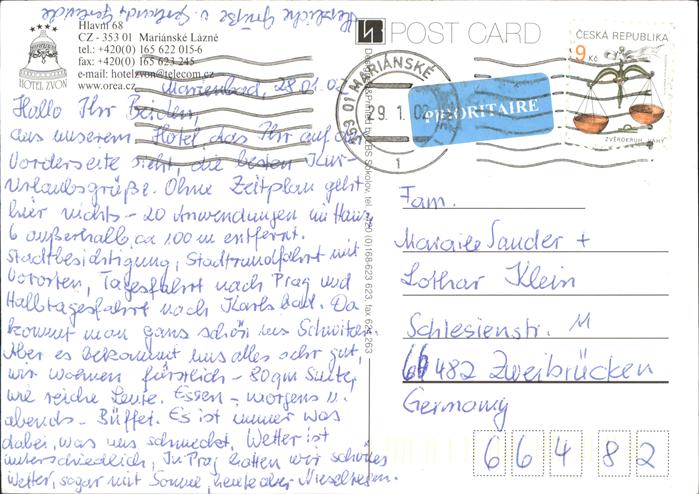 Herzliche Grüße v. Gerlinde, Gertrude
Hlavní 68
CZ - 353 01 Mariánské Lázně
tel.: +420(0) 165 622 015-6
fax: +420(0) 165 623 245
e-mail: hotelzvon@telecom.cz
www.orea.cz
HOTEL ZVON
Marienbad, 28.01.02
Hallo Ihr Beiden,
aus unserem Hotel, das Ihr auf der
Vorderseite seht, die besten Kur-
urlaubsgrüße. Ohne Zeitplan geht
hier nichts - 20 Anwendungen im Haus,
6 außerhalb, ca 100 m entfernt.
Stadtbesichtigung, Stadtrundfahrt mit
Vororten, Tagesfahrt nach Prag und
Halbtagesfahrt nach Karlsbad. Da
kommt man ganz schön ins Schwitzen.
Aber es bekommt uns alles sehr gut,
wir wohnen fürstlich - 80 qm Suite,
wie reiche Leute. Essen - morgens u.
abends - Büffet. Es ist immer was
dabei, was uns schmeckt. Wetter ist
unterschiedlich, In Prag hatten wir schönes
Wetter, sogar mit Sonne, heute aber Nieselregen.
POST CARD
353 01 MARIÁNSKÉ
29.1.02
1
PRIORITAIRE
ČESKÁ REPUBLIKA
9 Kč
ZVĚROKRUH - VÁHY
Fam.
Sander +
Lothar Klein
Schlesienstr. 11
66482 Zweibrücken
Germany
6 6 4 8 2